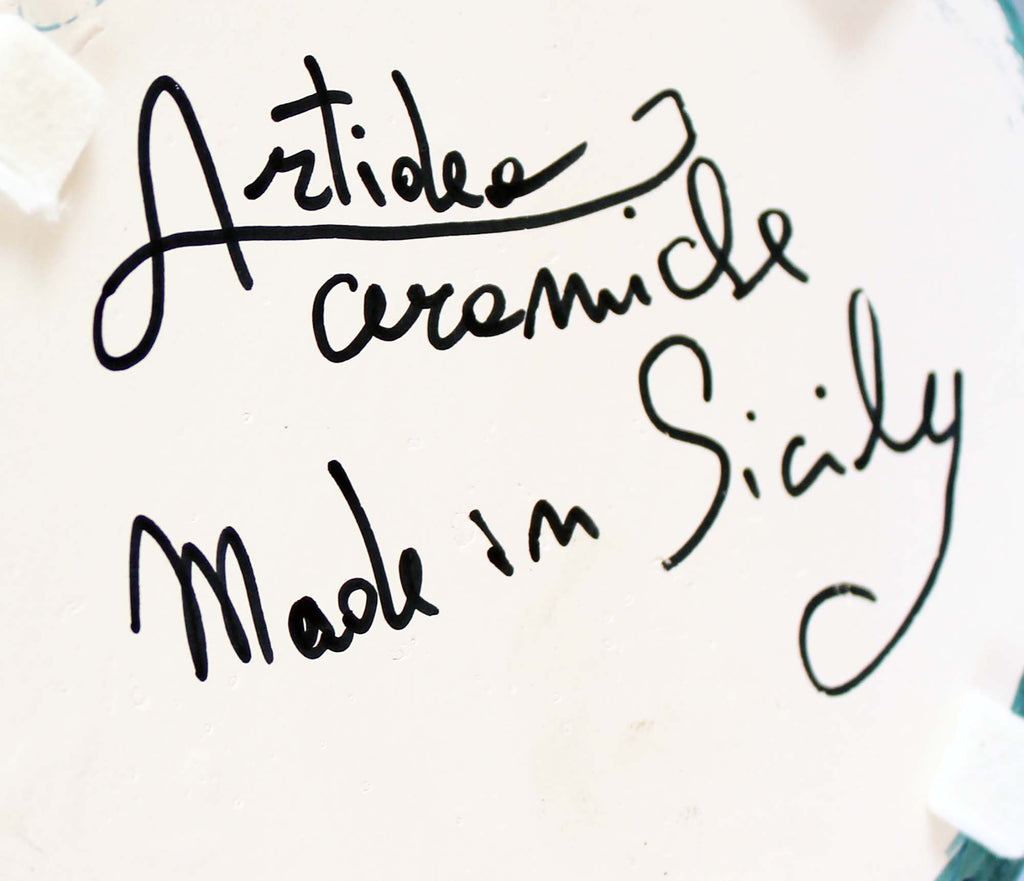 Artidea
ceramiche
Made in Sicily